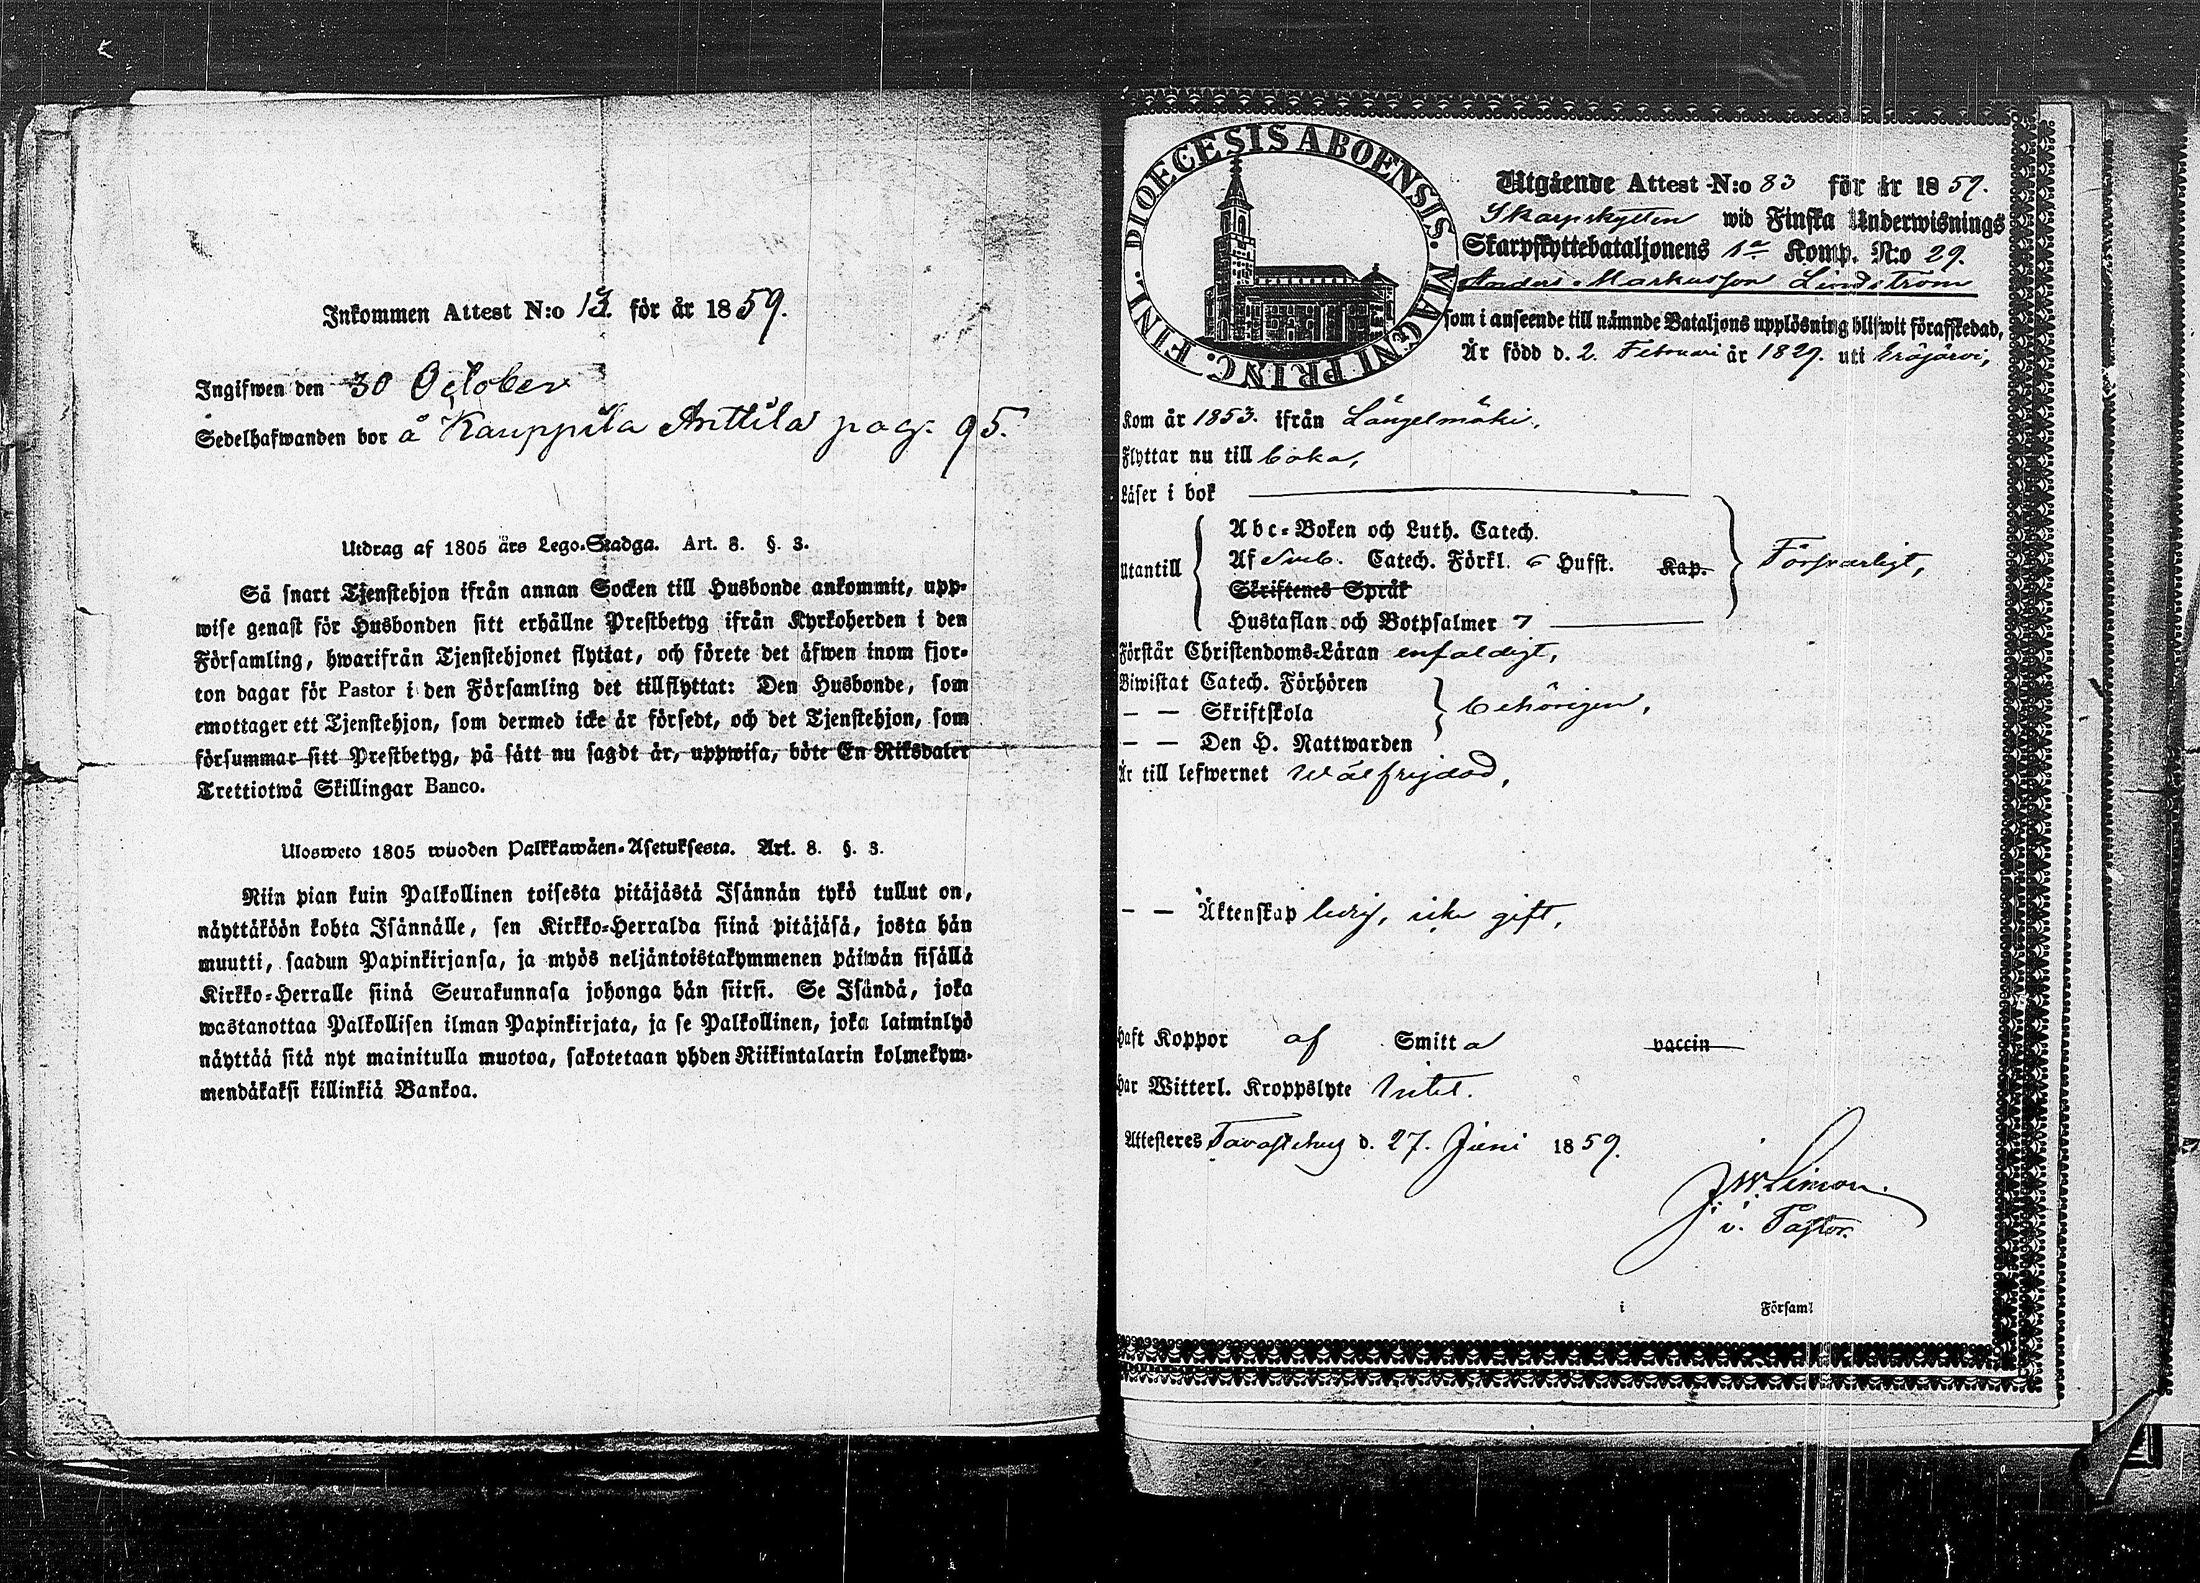 Inkommen Attest N:o 13. för år 1859.
Ingifwen den 30 October
Sedelhafwanden bor å Kauppila Anttila pag. 95.
Utdrag af 1805 års Lego-Stadga. Art. 8. §. 3.
Så snart Tjenstehjon ifrån annan Socken till Husbonde ankommit, upp-
wise genast för Husbonden sitt erhållne Prestbetyg ifrån Kyrkoherden i den
Församling, hwarifrån Tjenstehjonet flyttat, och förete det äfwen inom fjor-
ton dagar för Pastor i den Församling det tillflyttat: Den Husbonde, som
emottager ett Tjenstehjon, som dermed icke är försedt, och det Tjenstehjon, som
försummar sitt Prestbetyg, på sätt nu sagdt är, uppwisa, böte En Riksdaler
Trettiotwå Skillingar Banco.
Ulosweto 1805 wuoden Palkkawäen-Asetuksesta. Art. 8. §. 3.
Niin pian kuin Palkollinen toisesta pitäjästä Isännän tykö tullut on,
näyttäköön kohta Isännälle, sen Kirkko-Herralda siinä pitäjäsä, josta hän
muutti, saadun Papinkirjansa, ja myös neljäntoistakymmenen päiwän sisällä
Kirkko-Herralle siinä Seurakunnasa johonga hän siirsi. Se Isändä, joka
wastanottaa Palkollisen ilman Papinkirjata, ja se Palkollinen, joka laiminlyö
näyttää sitä nyt mainitulla muotoa, sakotetaan yhden Riikintalarin kolmekym-
mendäkaksi killinkiä Bankoa.
DIOECESIS ABOENSIS. MAGNI PRINC. FINL.
Utgående Attest N:o 83 för år 1859.
Skarpskytten wid Finska Underwisnings
Skarpskyttebataljonens 1a Komp. N:o 29.
Anders Markusson Lindström
som i anseende till nämnde Bataljons upplösning blifwit förafskedad,
Är född d. 2. Februari år 1829. uti Eräjärvi,
Kom år 1853. ifrån Längelmäki,
Flyttar nu till
Läser i bok
Utantill
Abc-Boken och Luth. Catech.
Af Sveb. Catech. Förkl. 6 Hufst. Kap.
Försvarligt,
Skriftenes Språk
Hustaflan och Botpsalmer 7
Förstår Christendoms-Läran enfaldigt,
Biwistat Catech. Förhören
— — Skriftskola
behörigen,
— — Den H. Nattwarden
Är till lefwernet wälfrejdad,
— — Äktenskap ledig, icke gift,
Haft Koppor af Smitta vaccin
Har Witterl. Kroppslyte Intet.
Attesteres Tavastehus d. 27. Juni 1859.
J W Limon.
v. Pastor.
i Församl